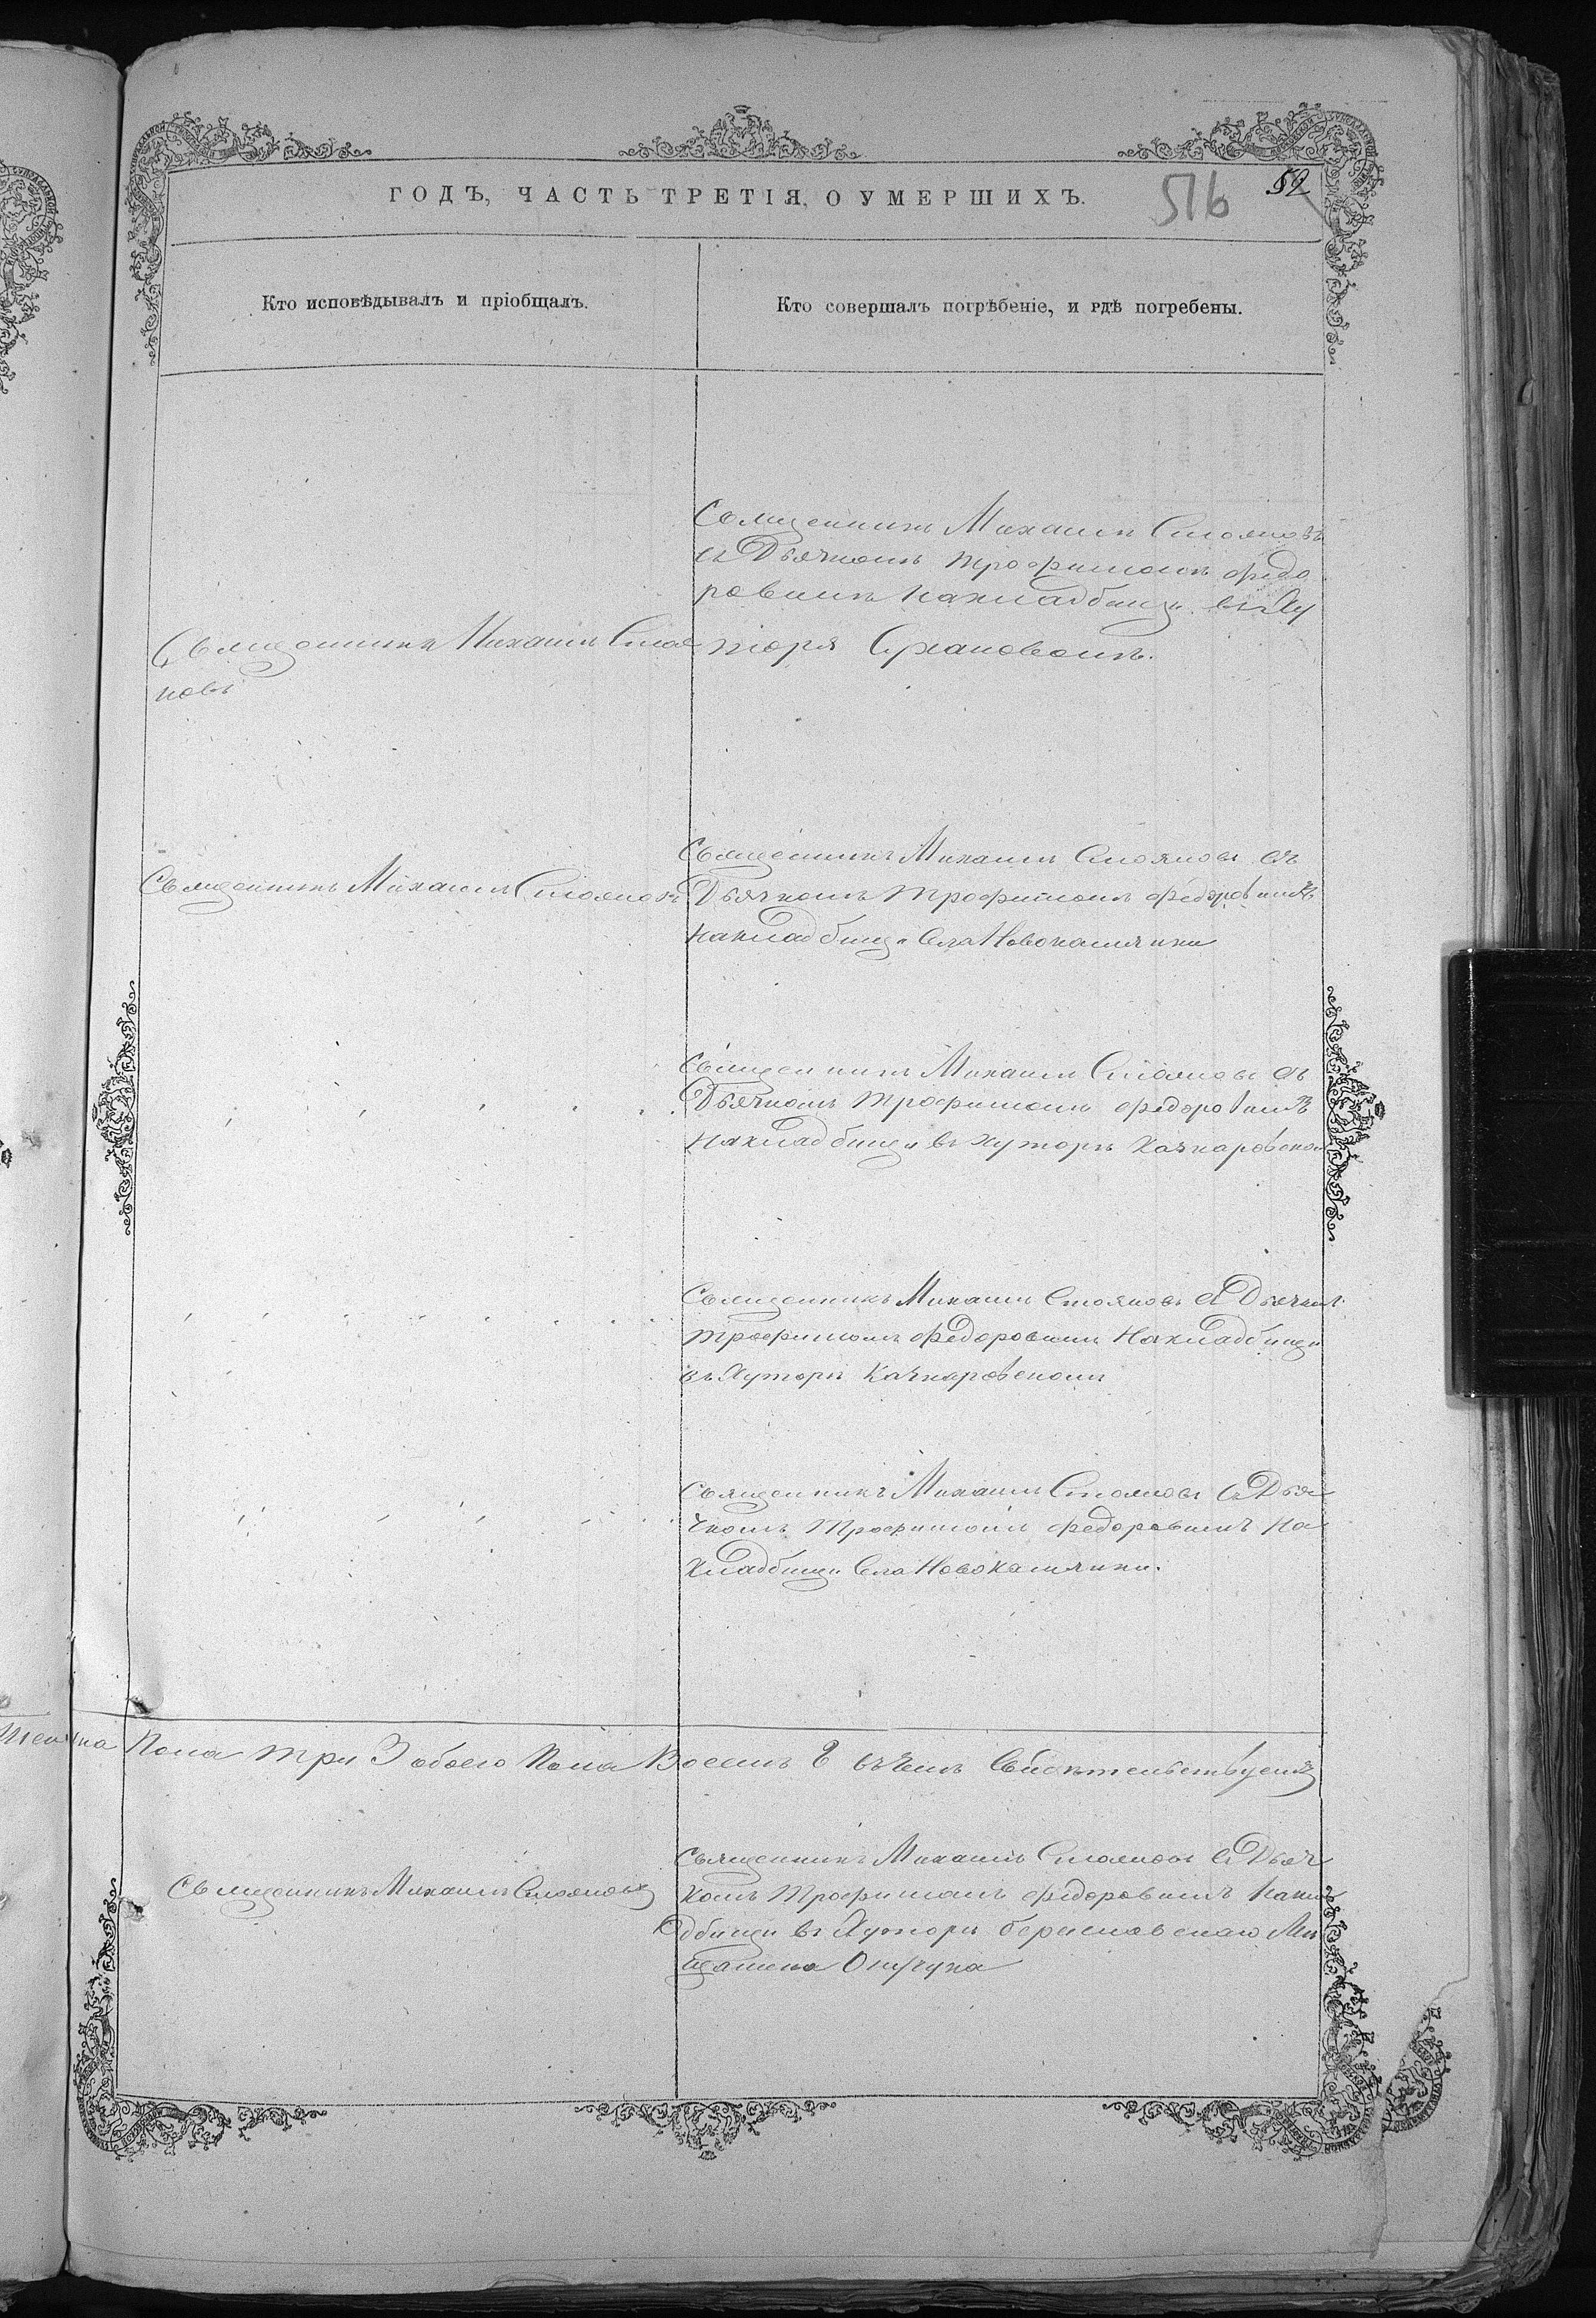 ГОДЪ, ЧАСТЬ ТРЕТІЯ, О УМЕРШИХЪ.
516
52
Кто исповѣдывалъ и пріобщалъ.
Кто совершалъ погрѣбеніе, и гдѣ погребены.
Священникъ Михаилъ Стояновъ
съ Дьячкомъ Трофимомъ Федо
ровимъ накладбищи въ Ху
торѣ Сухановомъ.
Священникъ Михаилъ Стоя
новъ
Священникъ Михаилъ Стояновъ съ
Дьячкомъ Трофимомъ Федоровимъ
накладбищи Села Новокамянки
Священникъ Михаилъ Стояновъ
Священникъ Михаилъ Стояновъ съ
Дьячкомъ Трофимомъ Федоровимъ
Накладбищи въ хуторѣ Качкаровском
Священникъ Михаилъ Стояновъ съ Дьячком
Трофимомъ Федоровимъ Накладбищи
въ Хуторѣ Качкаровскомъ
Священникъ Михаилъ Стояновъ съ Дья
чкомъ Трофимомъ Федоровимъ На
Кладбищи Села Новокамянки.
Пола три 3 обоего Пола Восемъ 8 въ чемъ Свидѣтельствуемъ
Священникъ Михаилъ Стояновъ съ Дьяч
комъ Трофимомъ Федоровимъ накл
адбищи въ Хуторѣ Бериславскаго Мѣ
щанина
Священникъ Михаилъ Стояновъ